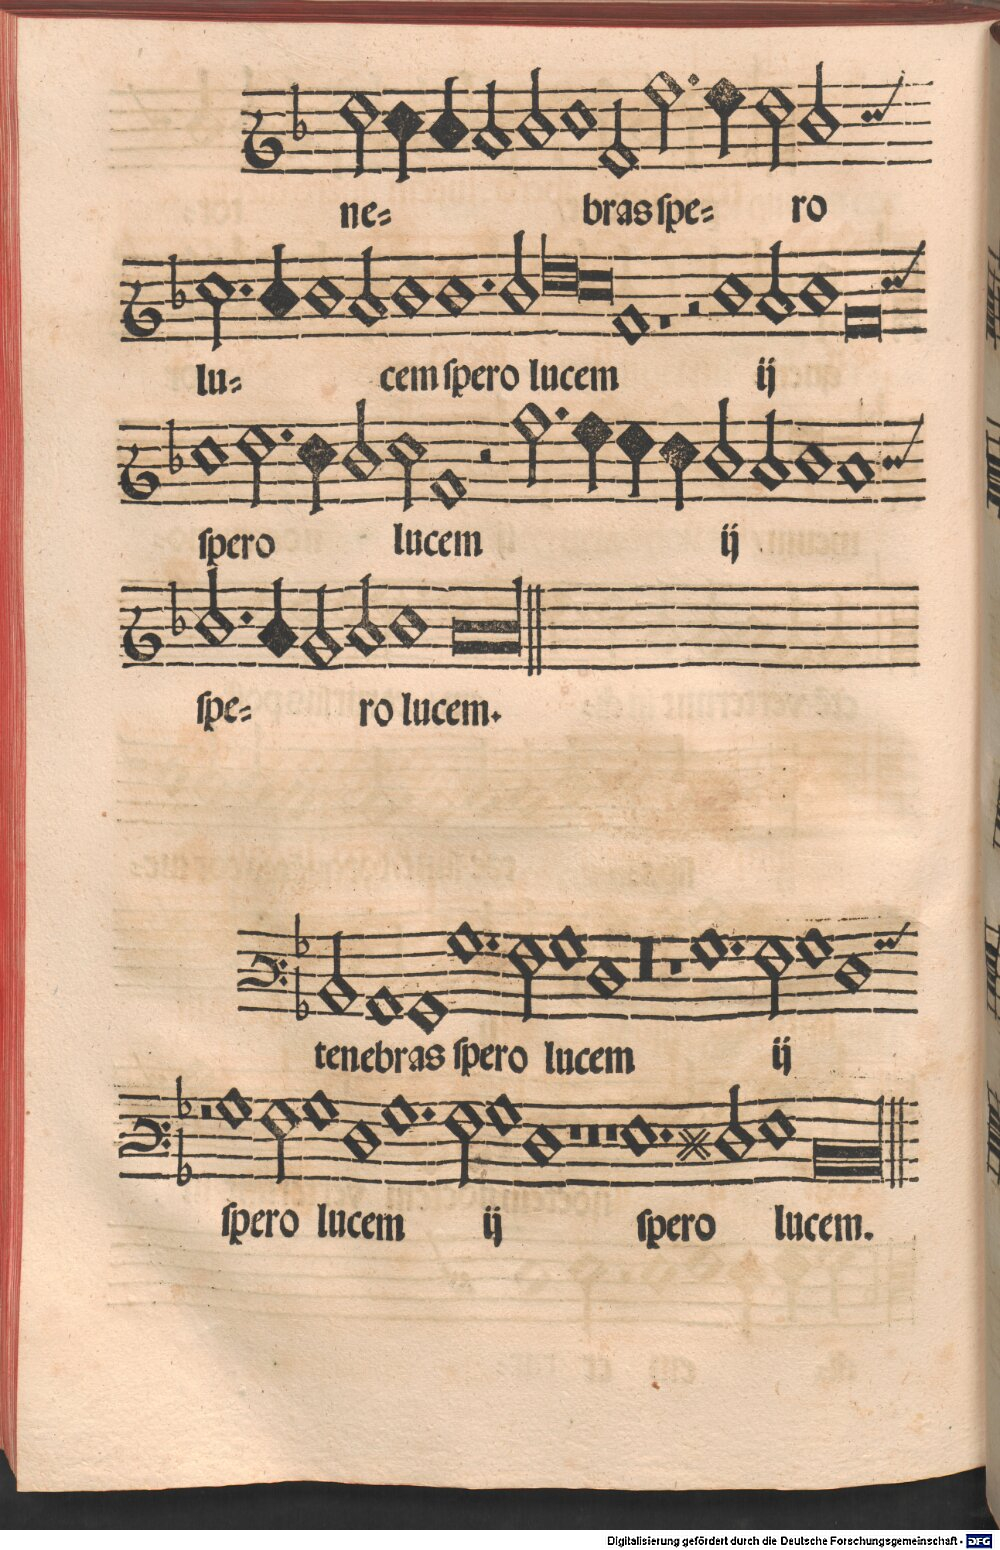 ne= bras spe= ro
lu= cem spero lucem ij
spero lucem ij
spe= ro lucem.
tenebras spero lucem ij
spero lucem ij spero lucem.
Digitalisierung gefördert durch die Deutsche Forschungsgemeinschaft - DFG